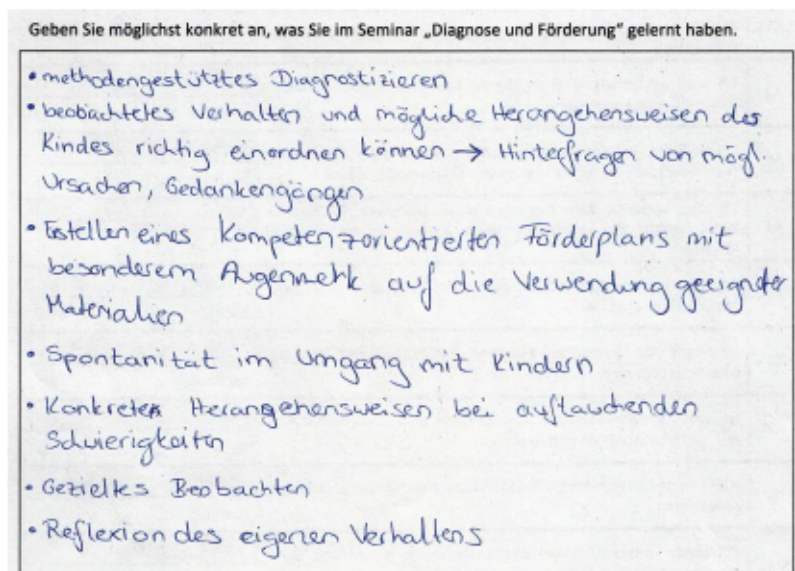 Geben Sie möglichst konkret an, was Sie im Seminar „Diagnose und Förderung" gelernt haben.
• methodengestütztes Diagnostizieren
• beobachtetes Verhalten und mögliche Herangehensweisen des
Kindes richtig einordnen können → Hinterfragen von mögl.
Ursachen, Gedankengängen
• Erstellen eines kompetenzorientierten Förderplans mit
besonderem Augenmerk auf die Verwendung geeigneter
Materialien
• Spontanität im Umgang mit Kindern
• Konkrete Herangehensweisen bei auftauchenden
Schwierigkeiten
• Gezieltes Beobachten
• Reflexion des eigenen Verhaltens